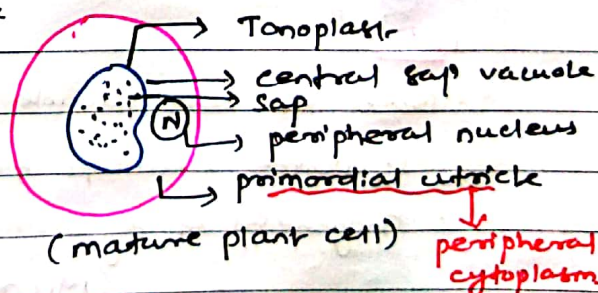 Tonoplast
central sap vacuole
sap
N
peripheral nucleus
primordial utricle
(mature plant cell)
peripheral
cytoplasm